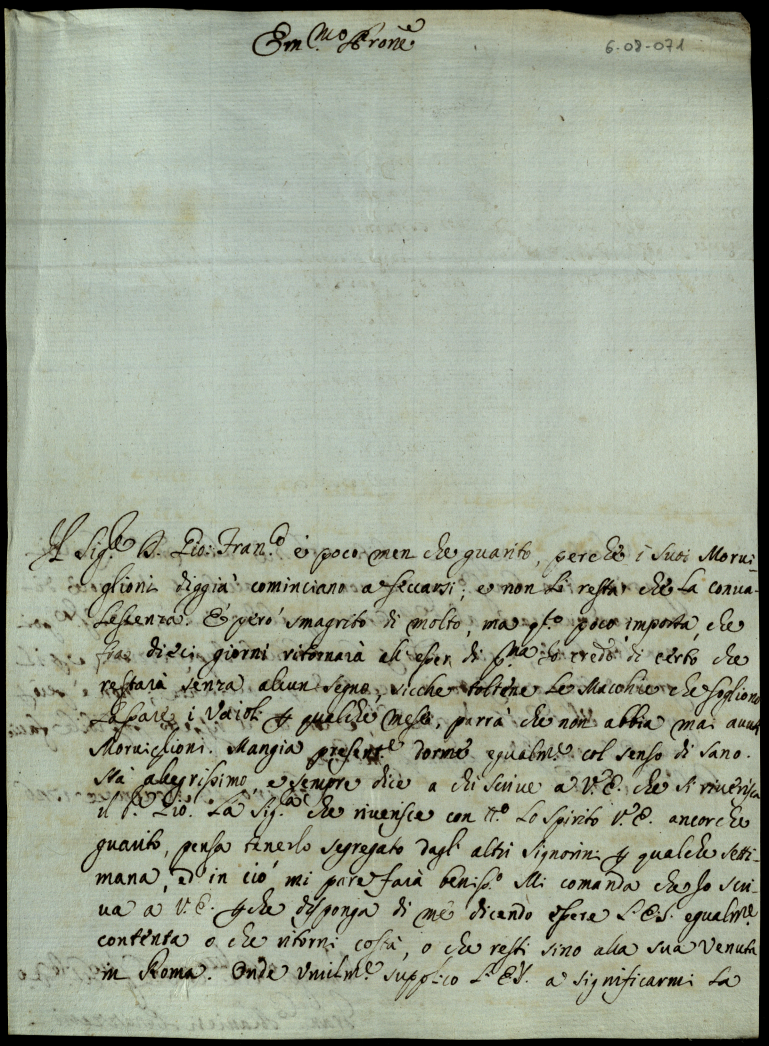 Em.mo Prone
6-08-071
Il Sig.e D. Gio: Fran.co è poco men che guarito, perchè i suoi Morvi-
glioni diggià cominciano a seccarsi, e non Li resta che La conva-
Lescenza. È però smagrito di molto, ma q.sto poco importa, che
fra dieci giorni ritornarà all'esser di p.ma Io credo di certo che
restarà senza alcun segno, sicche toltene Le Macchie che sogliono
Lasciare i Vaioli p qualche mese, parrà che non abbia mai avuti
Morviglioni. Mangia present.e dorme egualm.e col senso di sano.
Stà allegrissimo e sempre dice a chi scrive a V.E. che si riverisca
il S.e Zio. La Sig.ra che riverisce con tt.o Lo spirito V.E. ancorche
guarito, pensa tenerlo segregato dagl'altri Signorini p qualche setti-
mana, ed in ciò mi pare farà beniss.o Mi comanda che Io scri-
va a V.E. pche disponga di me dicendo essere S.E.S. egualm.e
contenta o che ritorni costà, o che resti sino alla sua venuta
in Roma. Onde Vmilm.e supplico L'E.V. a significarmi La